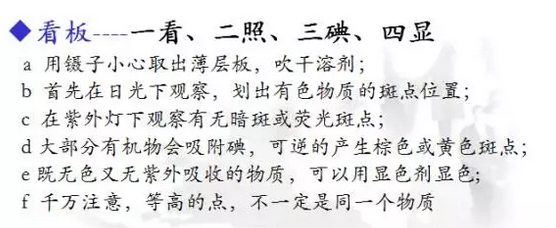 ◆看板----一看、二照、三碘、四显
a 用镊子小心取出薄层板，吹干溶剂；
b 首先在日光下观察，划出有色物质的斑点位置；
c 在紫外灯下观察有无暗斑或荧光斑点；
d 大部分有机物会吸附碘，可逆的产生棕色或黄色斑点；
e 既无色又无紫外吸收的物质，可以用显色剂显色；
f 千万注意，等高的点，不一定是同一个物质